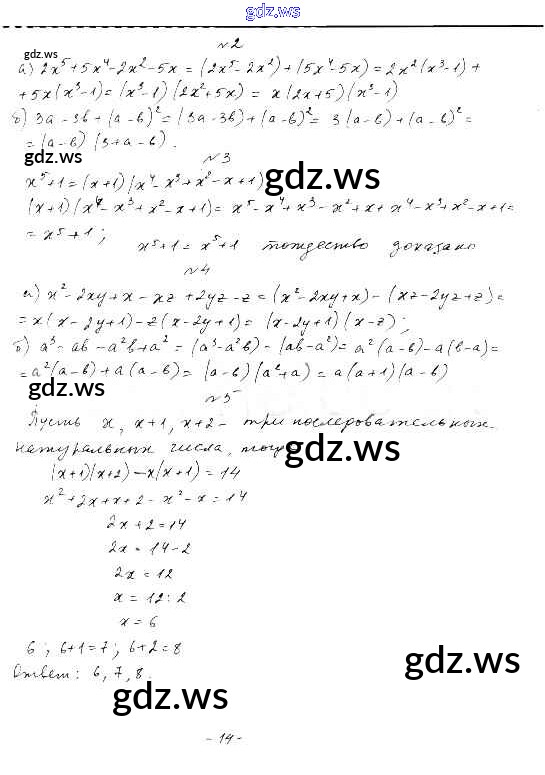 gdz.ws
gdz.ws
№2
а) 2x⁵+5x⁴-2x²-5x = (2x⁵-2x²)+(5x⁴-5x) = 2x²(x³-1)+
+5x(x³-1) = (x³-1)(2x²+5x) = x(2x+5)(x³-1)
б) 3a-3b+(a-b)² = (3a-3b)+(a-b)² = 3(a-b)+(a-b)² =
gdz.ws
= (a-b)(3+a-b).
№3
x⁵+1 = (x+1)(x⁴-x³+x²-x+1)
gdz.ws
(x+1)(x⁴-x³+x²-x+1) = x⁵-x⁴+x³-x²+x+x⁴-x³+x²-x+1 =
= x⁵+1;
x⁵+1 = x⁵+1 тождество доказано
№4
а) x²-2xy+x-xz+2yz-z = (x²-2xy+x)-(xz-2yz+z) =
= x(x-2y+1)-z(x-2y+1) = (x-2y+1)(x-z);
б) a³-ab-a²b+a² = (a³-a²b)-(ab-a²) = a²(a-b)-a(b-a) =
= a²(a-b)+a(a-b) = (a-b)(a²+a) = a(a+1)(a-b)
gdz.ws
№5
Пусть x, x+1, x+2 - три последовательных
натуральных числа,
gdz.ws
(x+1)(x+2)-x(x+1) = 14
x²+2x+x+2-x²-x = 14
2x+2 = 14
2x = 14-2
2x = 12
x = 12:2
x = 6
6; 6+1=7; 6+2=8
gdz.ws
Ответ: 6, 7, 8.
gdz.ws
-14-